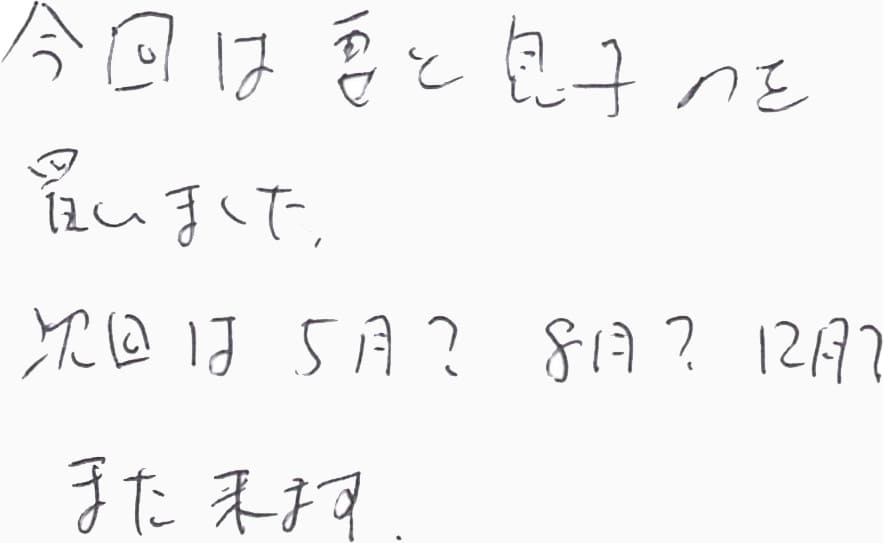 今回は と 息子 のを
買いました.
次回は 5月? 8月? 12月?
また来ます.